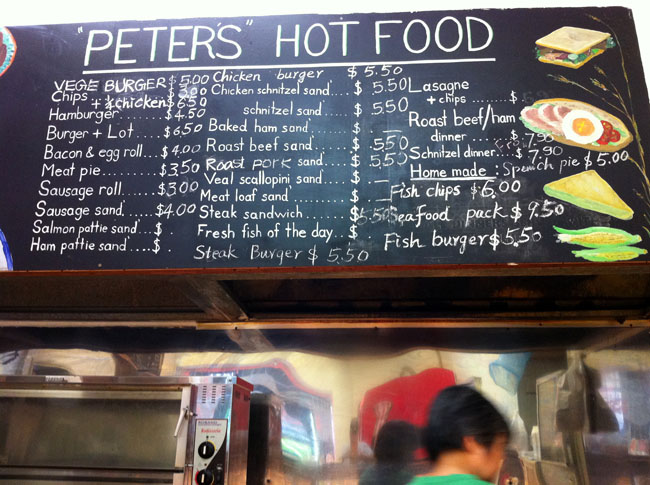 "PETER'S" HOT FOOD
VEGE BURGER $5.00
Chips $3.00
+ ¼ chicken $6.50
Hamburger $4.50
Burger + Lot $6.50
Bacon & egg roll $4.00
Meat pie $3.50
Sausage roll $3.00
Sausage sand' $4.00
Salmon pattie sand' $
Ham pattie sand' $
Chicken burger $5.50
Chicken schnitzel sand' $5.50
schnitzel sand' $5.50
Baked ham sand' $
Roast beef sand' $5.50
Roast pork sand' $5.50
Veal scallopini sand' $
Meat loaf sand' $
Steak sandwich $5.50
Fresh fish of the day $
Steak Burger $5.50
Lasagne
+ chips $
Roast beef/ham
dinner $7.90
Schnitzel dinner $7.90
Home made - Spench pie $5.00
Fish chips $6.00
Seafood pack $9.50
Fish burger $5.50